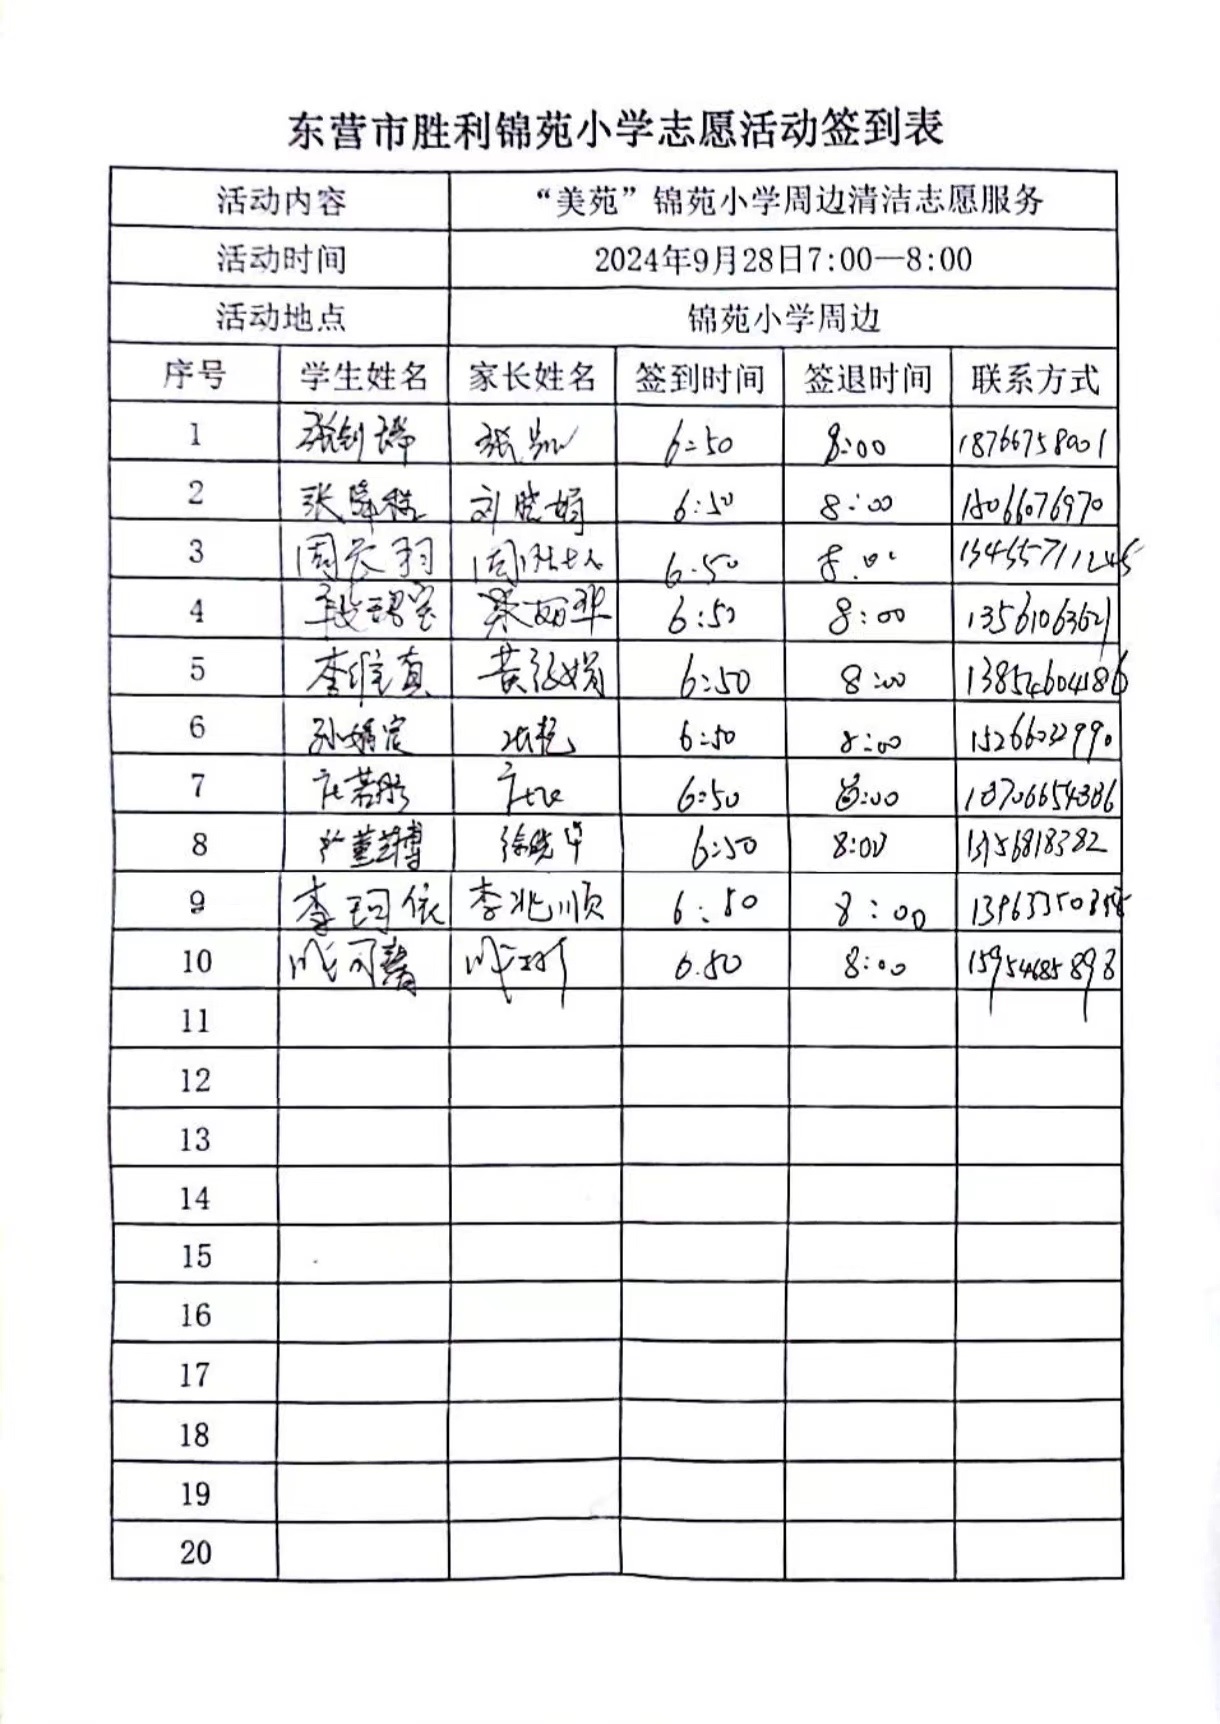 东营市胜利锦苑小学志愿活动签到表
活动内容 “美苑”锦苑小学周边清洁志愿服务
活动时间 2024年9月28日7:00—8:00
活动地点 锦苑小学周边
序号 学生姓名 家长姓名 签到时间 签退时间 联系方式
1 6:50 8:00 18766758001
2 刘晓娟 6:50 8:00
3 周天羽 6:50 8:00
4 吴丽华 6:50 8:00 13561063621
5 李维真 6:50 8:00 13854604186
6 6:50 8:00 15266032990
7 庄若彤 6:50 8:00 18706654386
8 徐晓华 6:50 8:00
9 李珂依 李兆顺 6:50 8:00
10 6:50 8:00 15954685898
11
12
13
14
15
16
17
18
19
20